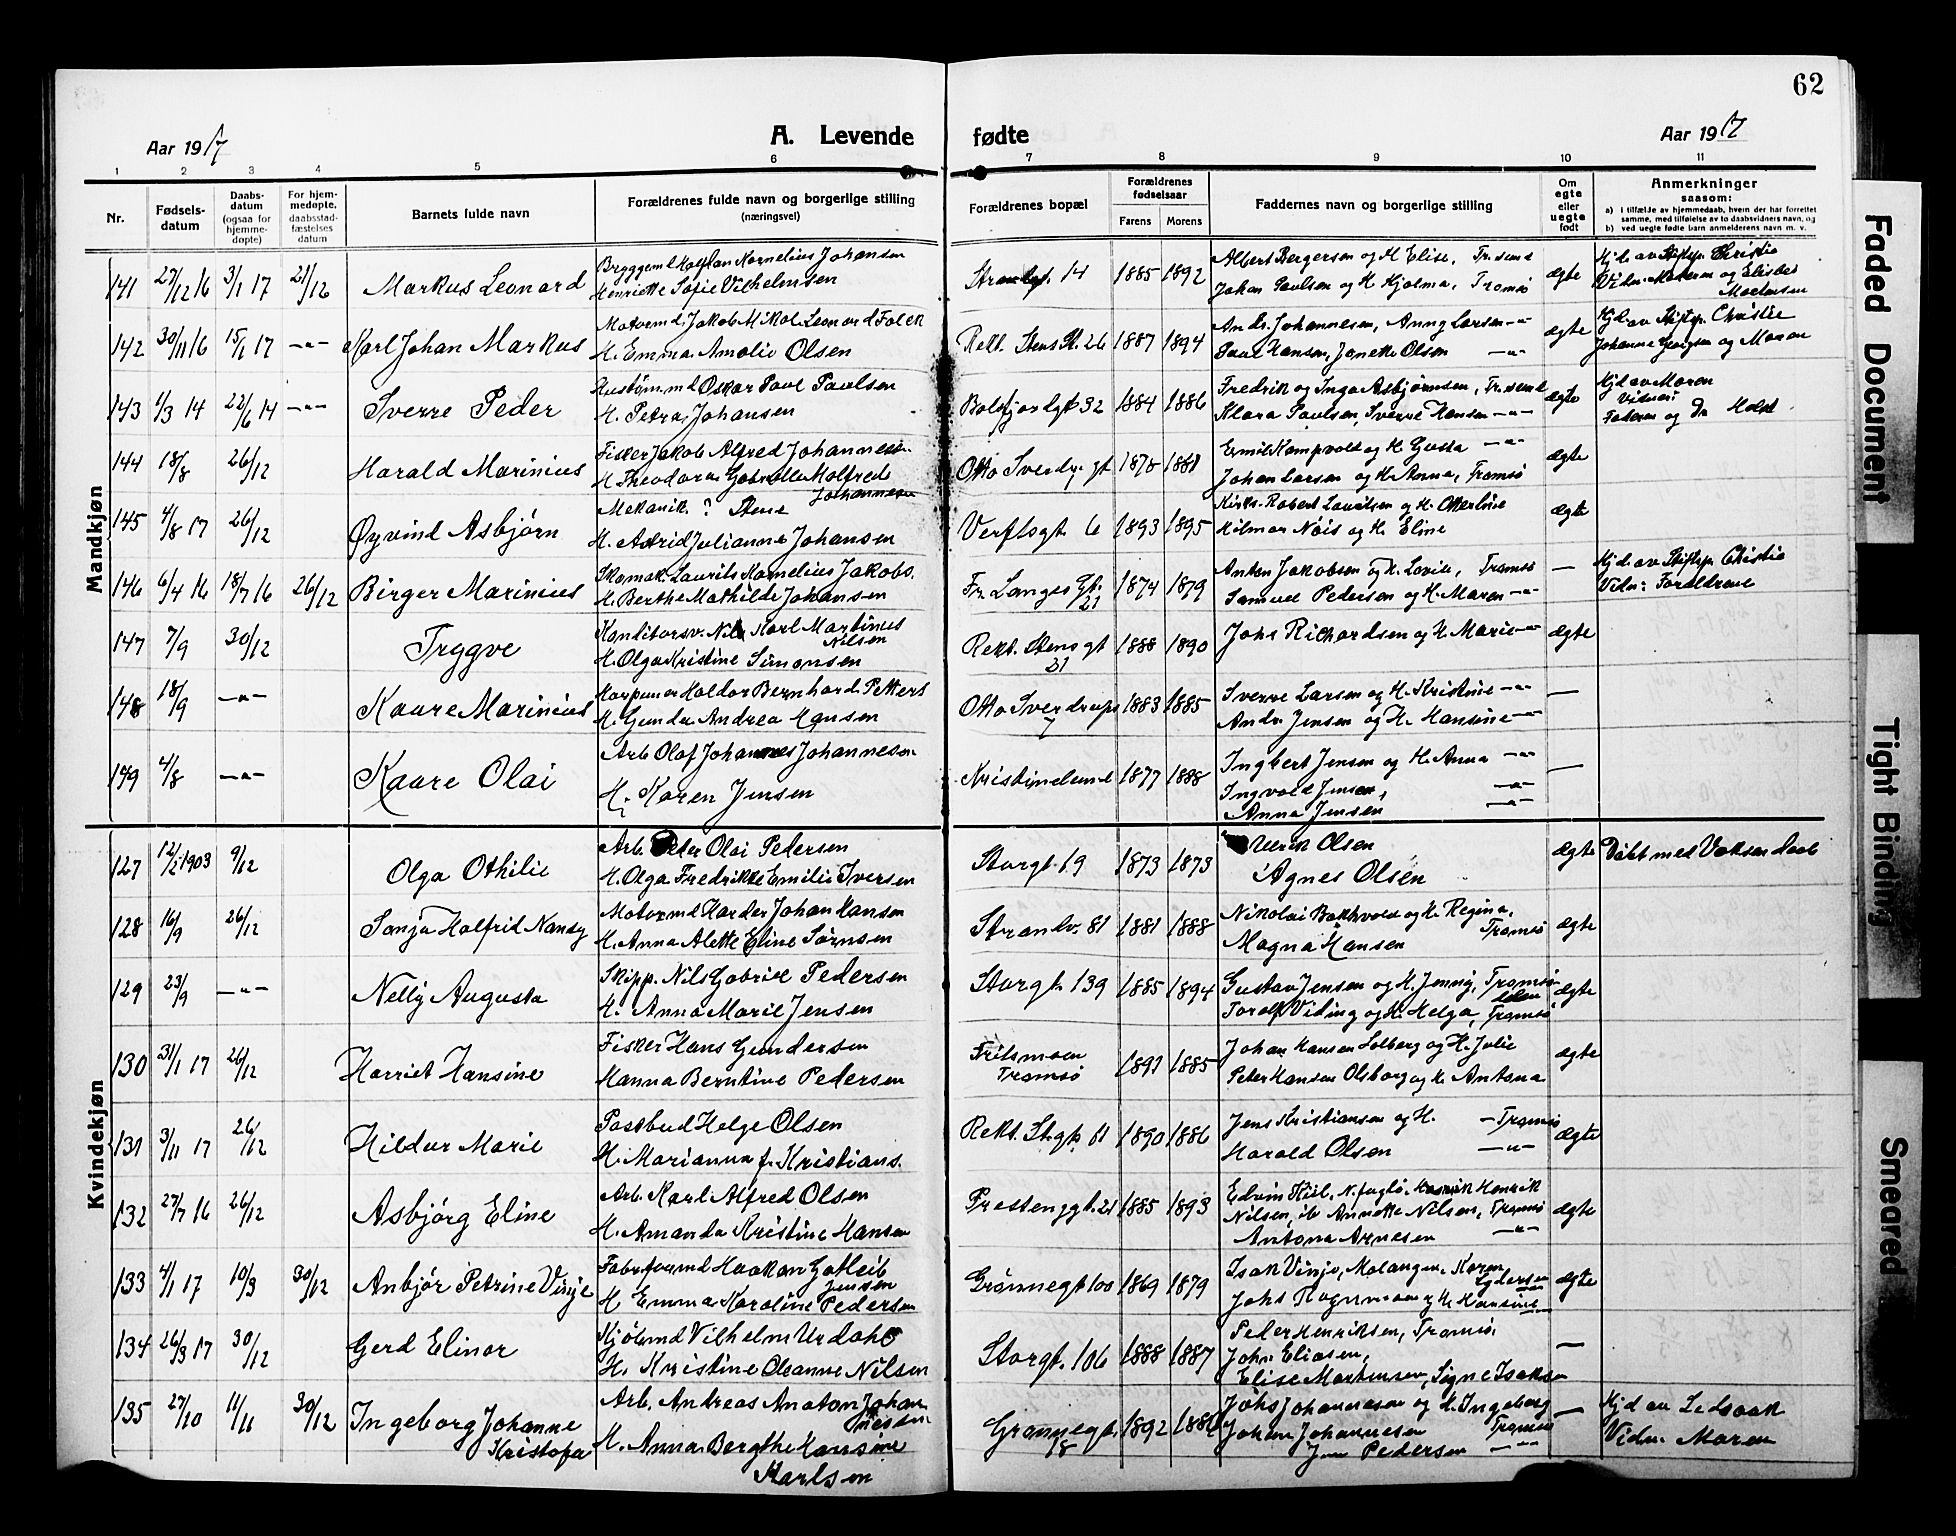 62
Aar 1917
A. Levende
fødte
Aar 1917
1 2 3 4 5 6 7 8 9 10 11
Nr.
Fødsels-
datum
Daabs-
datum
(ogsaa for
hjemme-
døpte)
For hjem-
medøpte,
daabsstad-
fæstelses
datum
Barnets fulde navn
Forældrenes fulde navn og borgerlige stilling
(næringsvei)
Forældrenes bopæl
Forældrenes
fødselsaar
Farens
Morens
Faddernes navn og borgerlige stilling
Om
egte
eller
uegte
født
Anmerkninger
saasom:
a) i tilfælde av hjemmedaab, hvem der har forrettet
samme, med tilføielse av to daabsvidners navn, og
b) ved uegte fødte barn anmelderens navn m. v.
Mandkjøn
141 27/12 16 3/1 17 21/12 Markus Leonard
Halfdan Kornelius Johansen
Henriette Sofie Vilhelmsen
14 1885 1892
Albert Bergersen og H. Elise, Tr.sund
Johan Paulsen og H. Hjolma, Tromsø
ægte
Hjd. av Stiftsp. Christie
Vidn: Moderen og Elisbet
Mortensen
142 30/11 16 15/1 17 -"- Karl Johan Markus
Motormd. Jakob Mikal Leonard Falck
H. Emma Amalie Olsen
Rekt. Stens Gt. 26 1887 1894
Andr. Johannesen, Anny Larsen -"-
Paul Hansen, Janette Olsen -"-
ægte
Hjd av Stiftsp. Christie
Johanna Georgsen og Moren
143 1/3 14 22/6 14 -"- Sverre Peder
Oskar Paul Paulsen
H. Petra Johansen
Balsfjordgt 32 1884 1886
Fredrik og Inga Asbjørnsen, Tr.sund
Klara Paulsen, Sverre Hansen -"-
ægte
Hjd av Moren
Vidner:
Faderen og Dr Holst
144 18/8 26/12 Harald Marinius
Fisker Jakob Alfred Johannessen
H. Theodora Gabrielle Molfred
Johannesen
Otto Sverdr. gt 1878 1881
Emil Kampvold og H. Gusta -"-
Johan Larsen og H. Anna, Tromsø
ægte
145 4/8 17 26/12 Øyvind Asbjørn
Mekanik. ? Stene
H. Astrid Julianne Johansen
Verftsgt. 6 1893 1895
Robert Lauritsen og H. Otterline
Hilmar Nøis og H. Eline
ægte
146 6/4 16 18/7 16 26/12 Birger Marinius
Skomak. Laurits Kornelius Jakobs.
H. Berthe Mathilde Johansen
Fr. Langes Gt.
21
1874 1879
Anton Jakobsen og H. Lovise, Tromsø
Samuel Pedersen og H. Maren -"-
—
Hjd. av Stiftsp. Christie
Vidn: Foraldrene
147 7/9 30/12 Tryggve
Konditorsv. Nils Karl Martinus
Nilsen
H. Olga Kristine Simonsen
Rekt. Stens gt
31
1888 1890
Johs Richardsen og H. Marie -"-
ægte
148 18/9 -"- Kaare Marinius
Harpuner Haldor Bernhard Petters
H. Gunda Andrea Hansen
Otto Sverdrups
7
1883 1885
Sverre Larsen og H. Kristine -"-
Andr. Jensen og H. Hansine -"-
—
149 4/8 -"- Kaare Olai
Arb. Olaf Johannes Johannesen
H. Karen Jensen
Kristinelund 1877 1888
Ingbert Jensen og H. Anna -"-
Ingvald Jensen, -"-
Anna Jensen -"-
—
Kvindekjøn
127 12/2 1903 9/12 Olga Othilie
Arb. Peder Olai Pedersen
H. Olga Fredrikke Emilie Iversen
Storgt. 19 1873 1873
Ulrik Olsen
Agnes Olsen
ægte
Døbt med Voksen daab
128 16/9 26/12 Sonja Halfrid Nansy
Motormd Harder Johan Hansen
H. Anna Alette Eline Sørnsen
Strandv. 81 1881 1888
Nikolai Bakkvold og H. Regina,
Tromsø
Magna Hansen
ægte
129 23/9 -"- Nelly Augusta
Skipp. Nils Gabriel Pedersen
H. Anna Marie Jensen
Storgt. 139 1885 1894
Gustav Jensen og H. Jenny, Tromsø
Toralf Viding og H. Helga, Tromsø
ægte
130 31/1 17 26/12 Harriet Hansine
Fisker Hans Gundersen
Hanna Berntine Pedersen
Fritsmoen
Tromsø
1891 1885
Johan Hansen Solberg og H. Julie
Peter Hansen Olsborg og H. Antona
ægte
131 3/11 17 26/12 Hildur Marie
Postbud Helge Olsen
H. Marianna f. Kristians.
Rekt. St.gt. 61 1890 1886
Jens Kristiansen og H. - Tromsø
Harald Olsen -"-
ægte
132 27/7 16 26/12 Asbjørg Eline
Arb. Karl Alfred Olsen
H. Amanda Kristine Hansen
Prestenggt. 21 1885 1893
Edvin Kiil, Henrik
Nilsen, ib Annette Nilsen, Tromsø
Antona Arnesen -"-
ægte
133 4/1 17 10/3 30/12 Anbjør Petrine Vinje
Haakon Gotleib
Jensen
H Emma Karoline Pedersen
Grønnegt 100 1869 1879
Isak Vinje, Malangen. Karen
Lydersen
Johs og H. Hansine
ægte
134 26/3 17 30/12 Gerd Elinor
Vilhelm Urdahl
H. Kristine Oleanne Nilsen
Storgt. 106 1888 1887
Peder Henriksen, Tromsø,
John Eliasen,
Elise Mortensen, Signe Isaksen
—
135 27/10 11/11 30/12 Ingeborg Johanne
Kristofa
Arb. Andreas Anaton Johan
nessen
H. Anna Bergthe Hansine
Karlsen
Grønnegt.
18
1892 1886
Johs Johannesen og H. Ingeborg
Johan Johannesen Tromsø
Pedersen -"-
—
Hjd av
Vidn. Moren
Faded Document
Tight Binding
Smeared